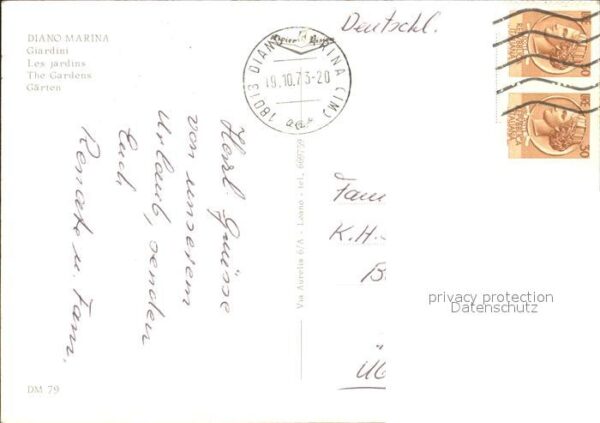 DIANO MARINA
Giardini
Les jardins
The Gardens
Gärten
Deutschl.
18013 DIANO MARINA (IM)
19.10.73-20
Herzl. Grüsse
von unserem
Urlaub, senden
Euch
Renate u. Fam.
Via Aurelia 6/A - Loano - tel. 669759
Fam
K.H.
B
privacy protection
Datenschutz
DM 79